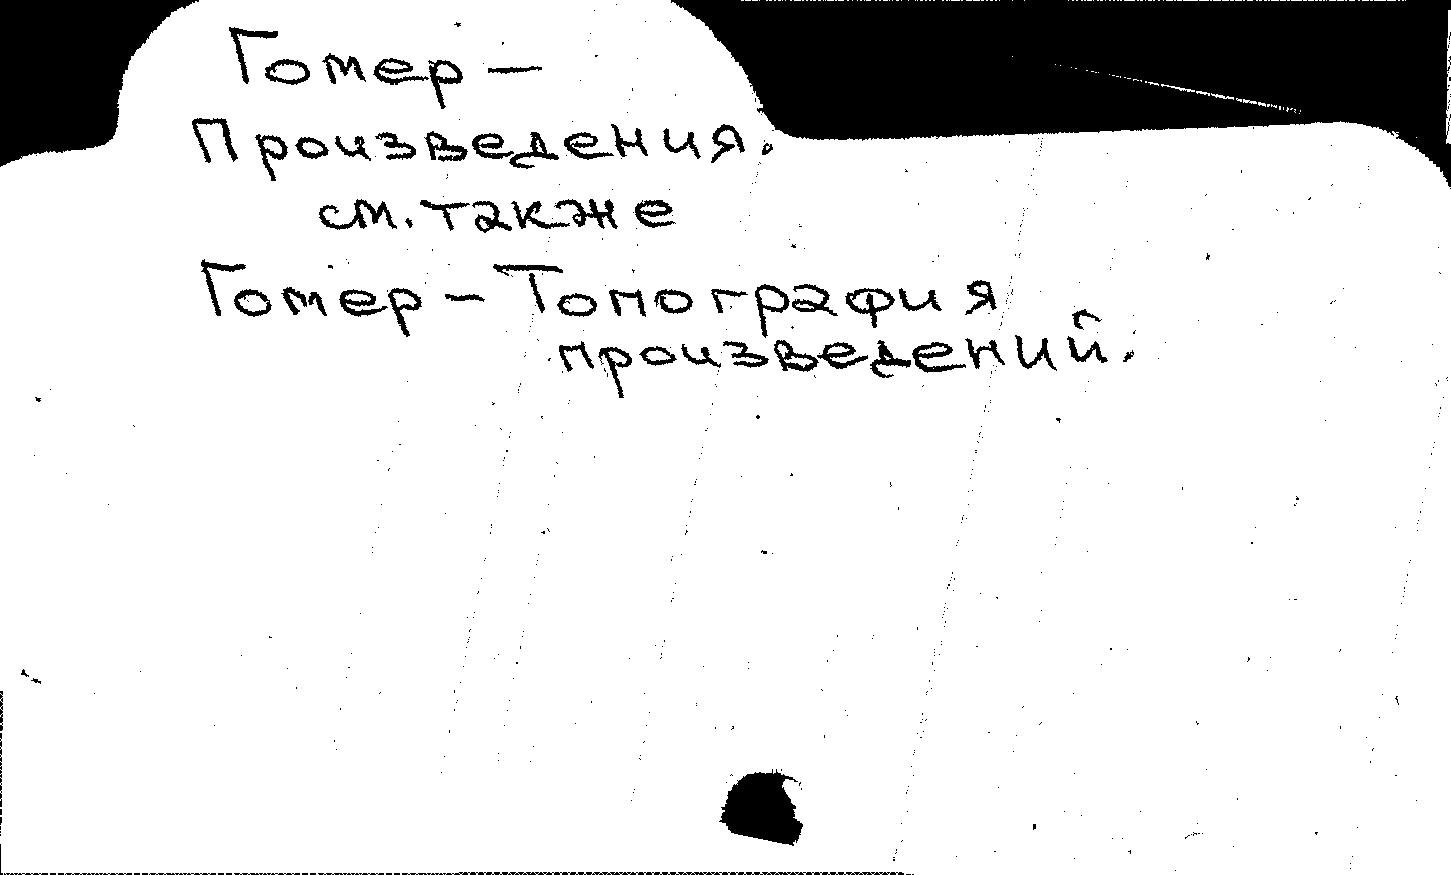 Гомер —
Произведения.
см. также
Гомер – Топография
произведений.